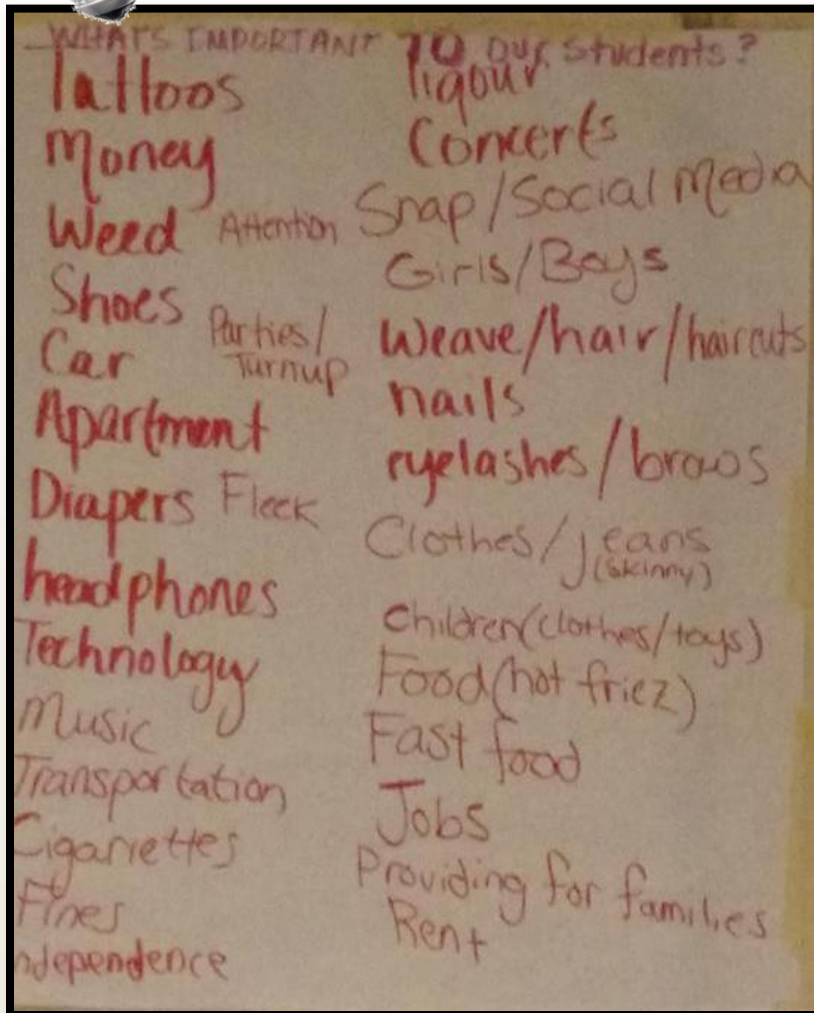 WHATS IMPORTANT TO OUR Students?
Tattoos
Money
Weed
Attention
Shoes
Parties/
Turnup
Car
Apartment
Diapers
Fleek
headphones
Technology
Music
Transportation
Cigarrettes
Fines
ndependence
liqour
Concerts
Snap/Social Media
Girls/Boys
Weave/hair/haircuts
nails
eyelashes/brows
Clothes/jeans
(skinny)
Children(clothes/toys)
Food(hot friez)
Fast food
Jobs
Providing for families
Rent